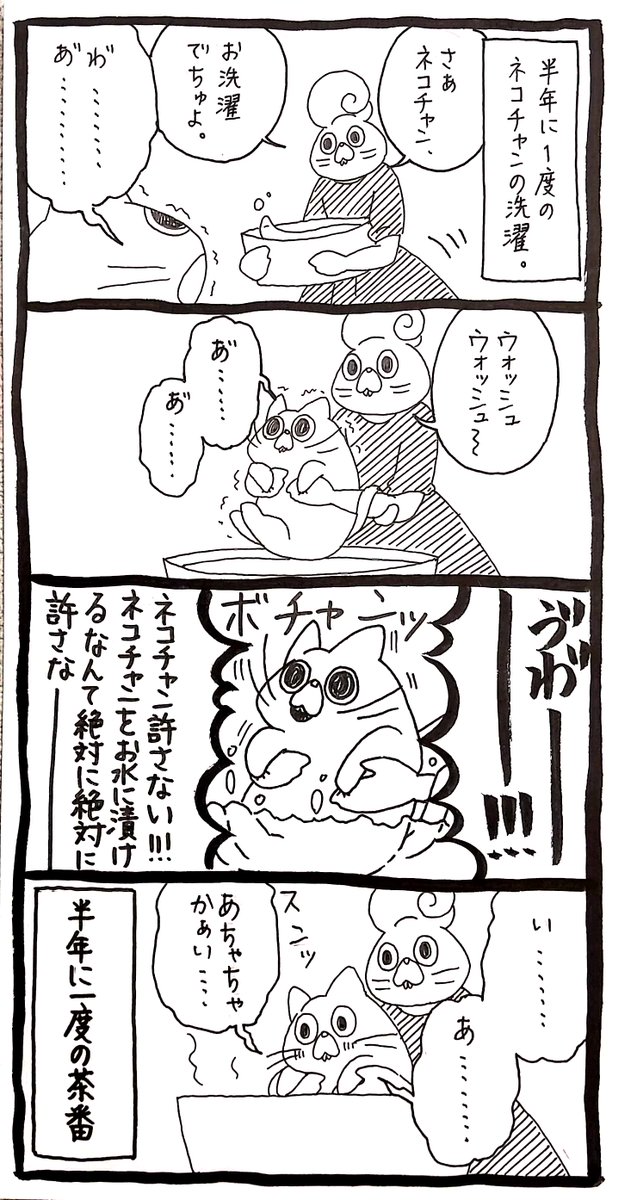 半年に1度の
ネコチャンの洗濯。
さぁ
ネコチャン、
お洗濯
でちゅよ。
わ゛、………
あ゛………
ウォッシュ
ウォッシュ〜
あ゛……
あ゛……
ゔわ゛ーー!!!
ボチャンッ
ネコチャン許さない!!!
ネコチャンをお水に漬け
るなんて絶対に絶対に
許さな——
い……
あ………
スンッ
あちゃちゃ
かぁい……
半年に一度の茶番